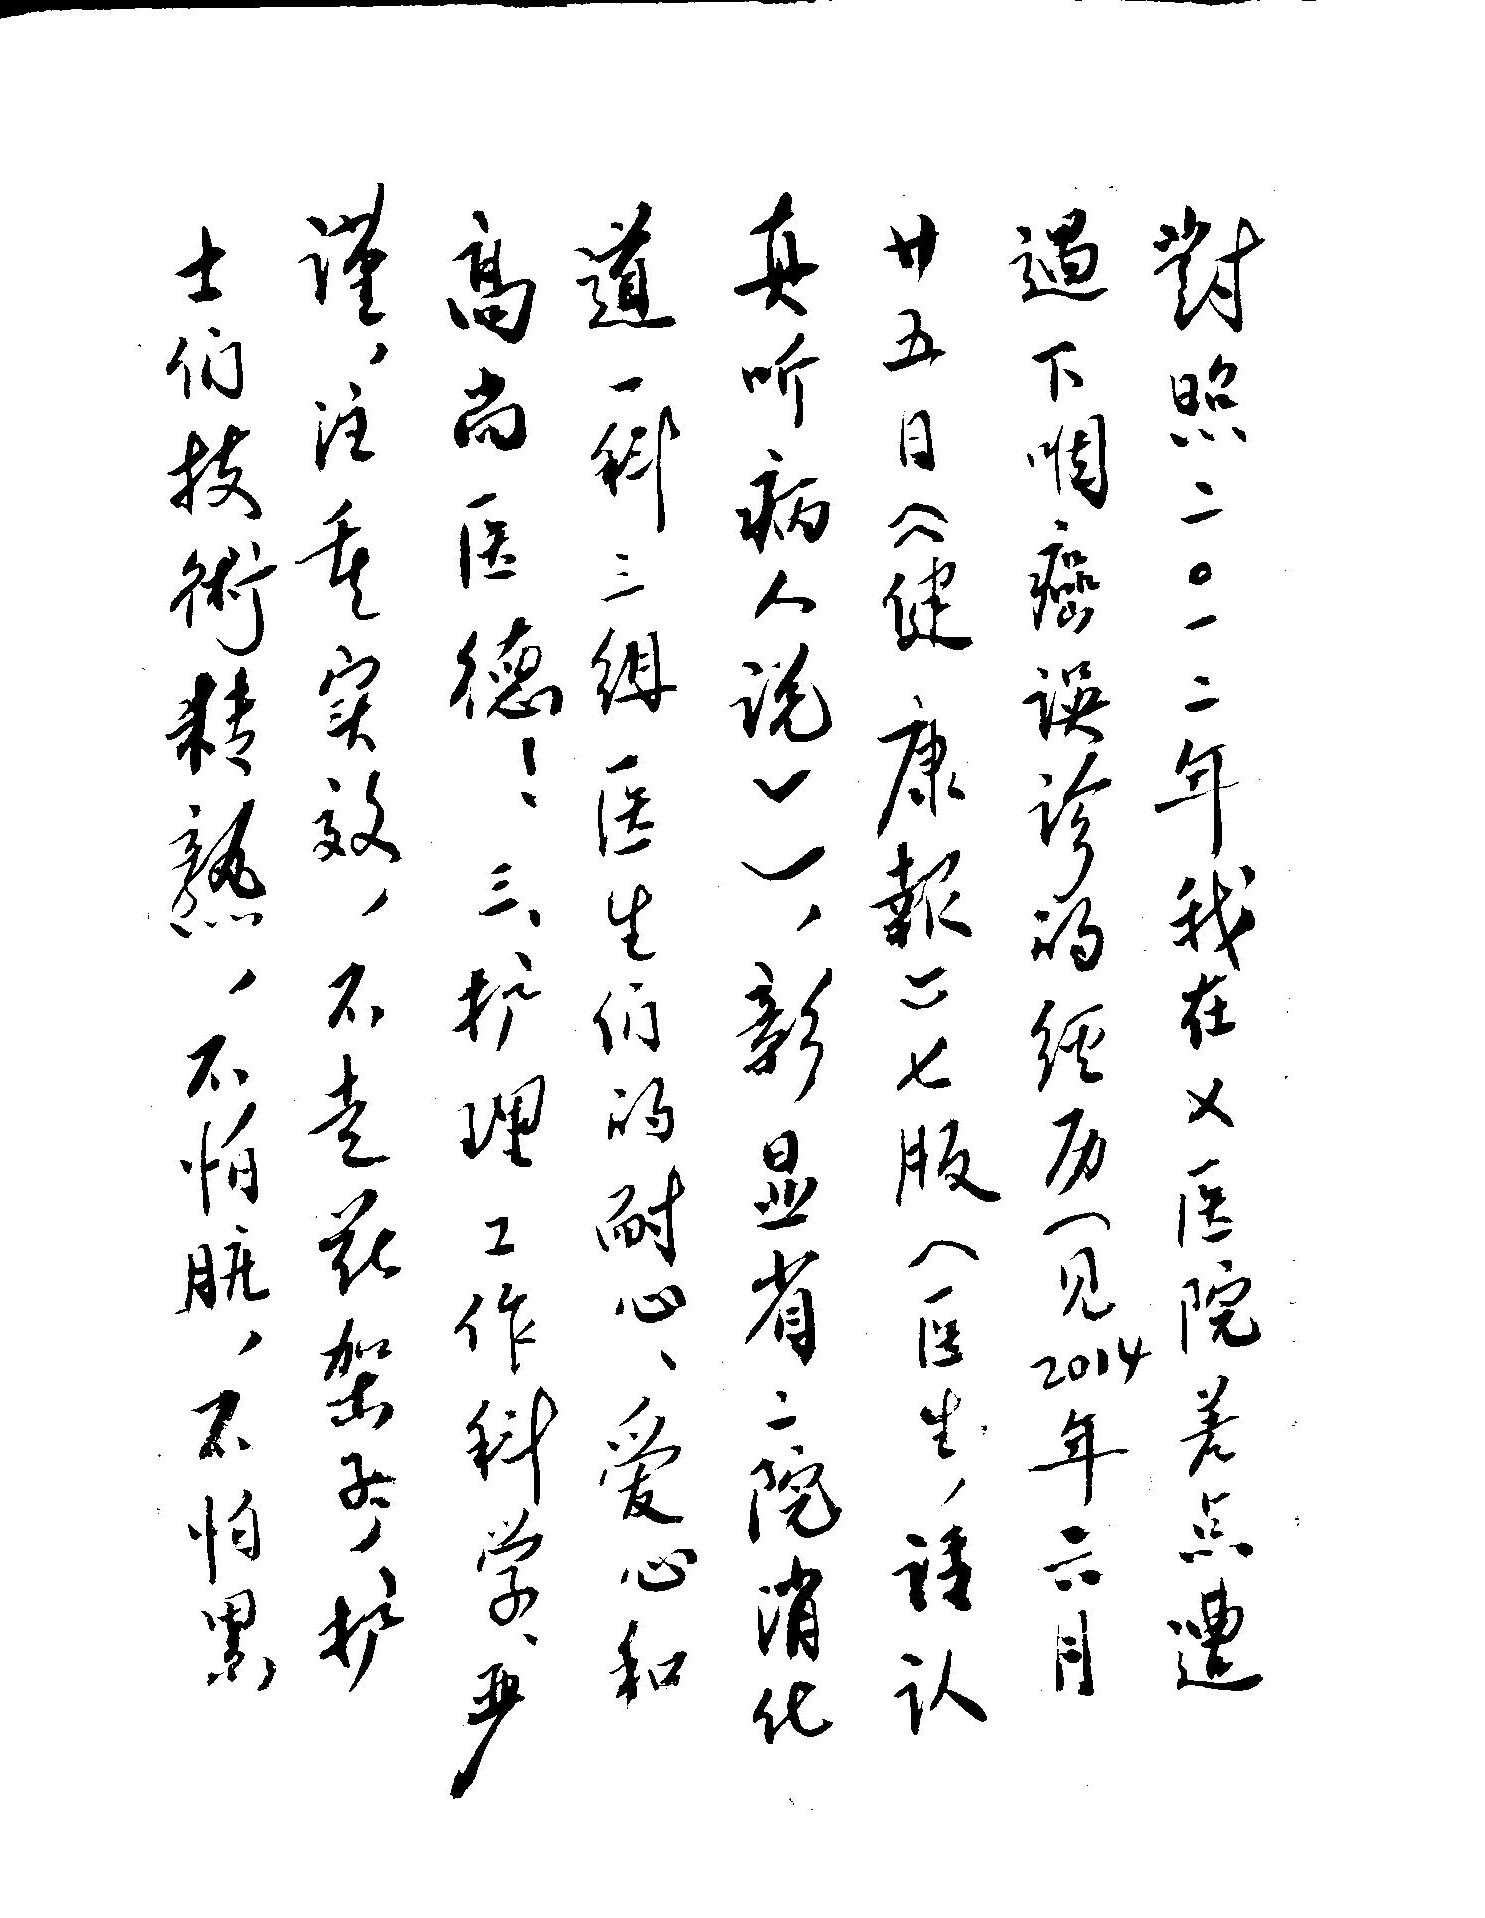 對照二〇一二年我在乂医院差点遭
過下咽癌误诊的经历（见2014年六月
廿五日《健康報》七版〈医生，请认
真听病人说〉），彰显省二院消化
道一科三组医生们的耐心、爱心和
高尚医德！三、护理工作科学、严
谨，注重实效，不走花架子，护
士们技術精熟，不怕脏，不怕累